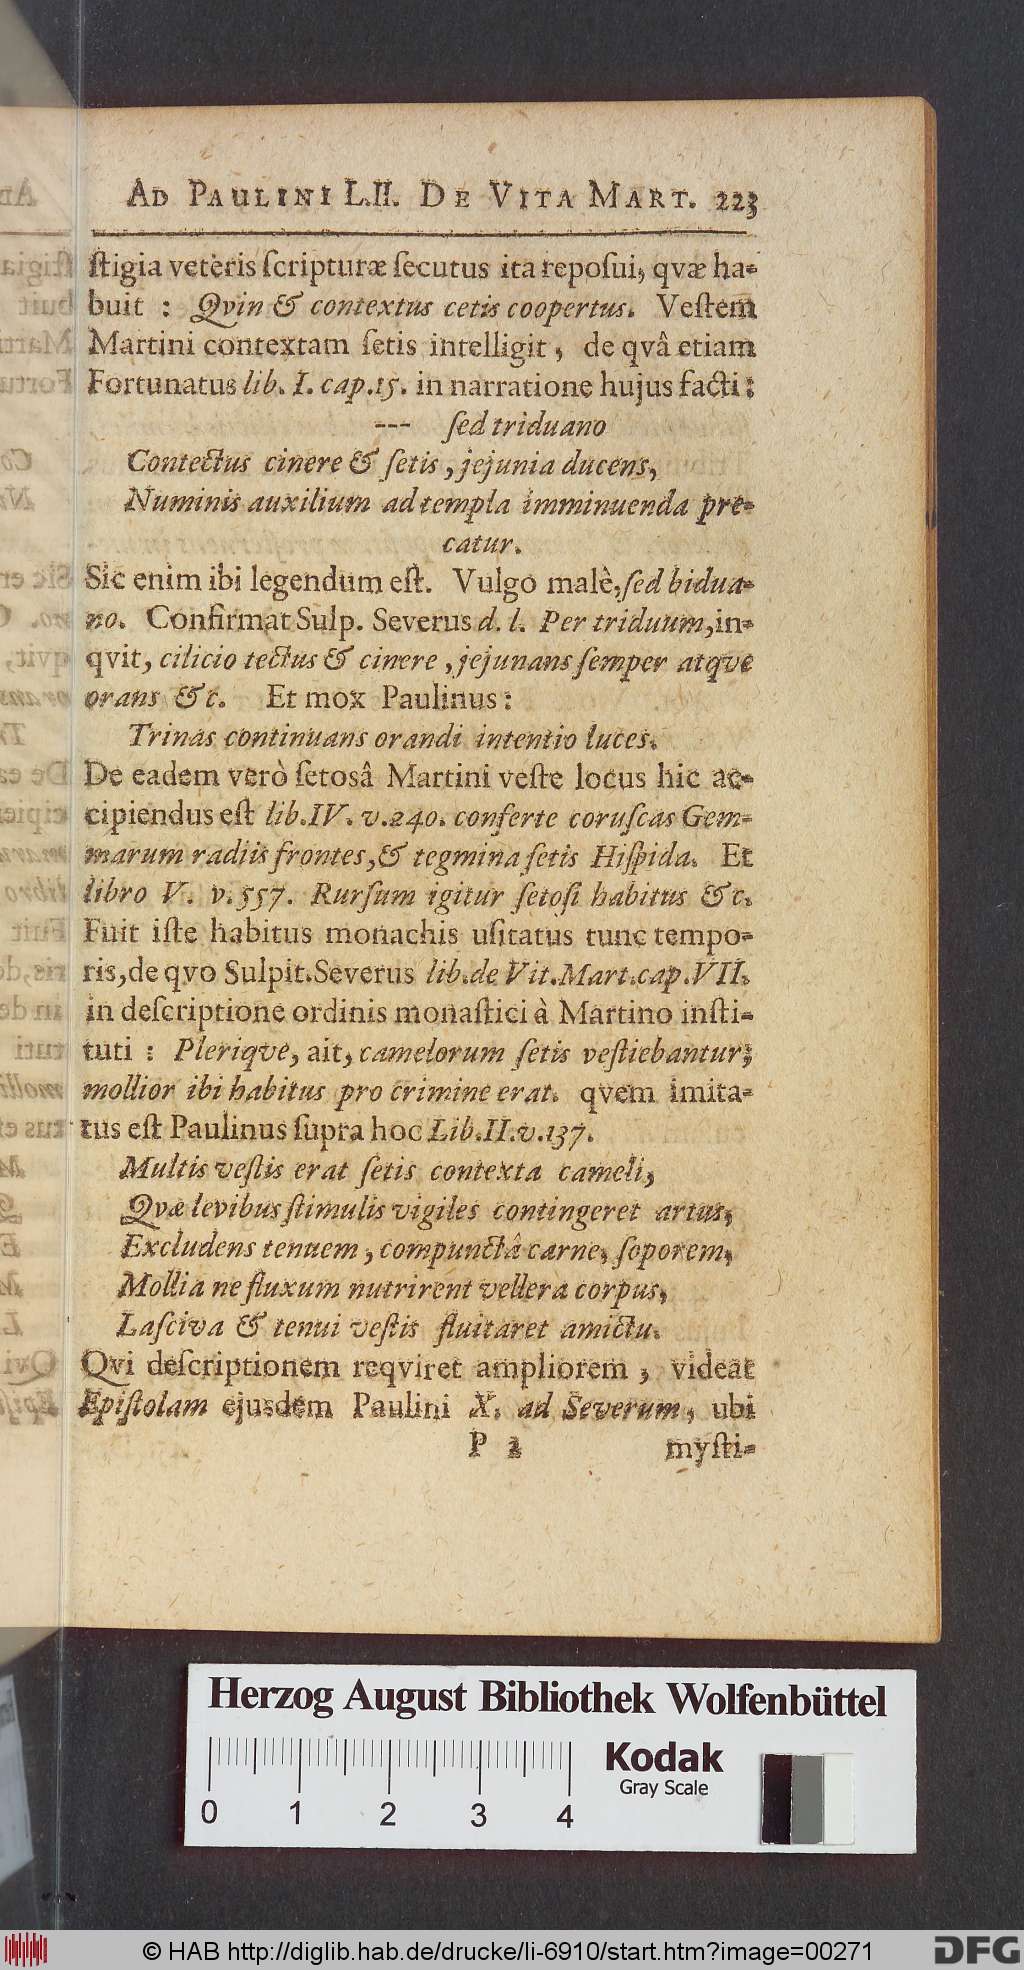 AD PAULINI L.II. DE VITA MART. 223
ſtigia veteris ſcripturæ ſecutus ita repoſui, qvæ ha-
buit : Qvin & contextus cetis coopertus. Veſtem
Martini contextam ſetis intelligit, de qvâ etiam
Fortunatus lib. I. cap.15. in narratione hujus facti:
--- ſed triduano
Contectus cinere & ſetis, jejunia ducens,
Numinis auxilium ad templa imminuenda pre-
catur.
Sic enim ibi legendum eſt. Vulgo malè, ſed bidua-
no. Confirmat Sulp. Severus d. l. Per triduum, in-
qvit, cilicio tectus & cinere, jejunans ſemper atqve
orans &c. Et mox Paulinus:
Trinas continuans orandi intentio luces.
De eadem verò ſetosâ Martini veſte locus hic ac-
cipiendus eſt lib.IV. v.240. conferte coruſcas Gem-
marum radiis frontes, & tegmina ſetis Hiſpida. Et
libro V. v.557. Rurſum igitur ſetoſi habitus &c.
Fuit iſte habitus monachis uſitatus tunc tempo-
ris, de qvo Sulpit. Severus lib. de Vit. Mart. cap. VII.
in deſcriptione ordinis monaſtici à Martino inſti-
tuti : Plerique, ait, camelorum ſetis veſtiebantur;
mollior ibi habitus pro crimine erat. qvem imita-
tus eſt Paulinus ſupra hoc Lib.II.v.137.
Multis veſtis erat ſetis contexta cameli,
Qvæ levibus ſtimulis vigiles contingeret artus,
Excludens tenuem, compunctâ carne, ſoporem,
Mollia ne fluxum nutrirent vellera corpus,
Laſciva & tenui veſtis fluitaret amictu.
Qvi deſcriptionem reqviret ampliorem, videat
Epiſtolam ejusdem Paulini X. ad Severum, ubi
P 2 myſti-
Herzog August Bibliothek Wolfenbüttel
Kodak
Gray Scale
0 1 2 3 4
© HAB http://diglib.hab.de/drucke/li-6910/start.htm?image=00271
DFG